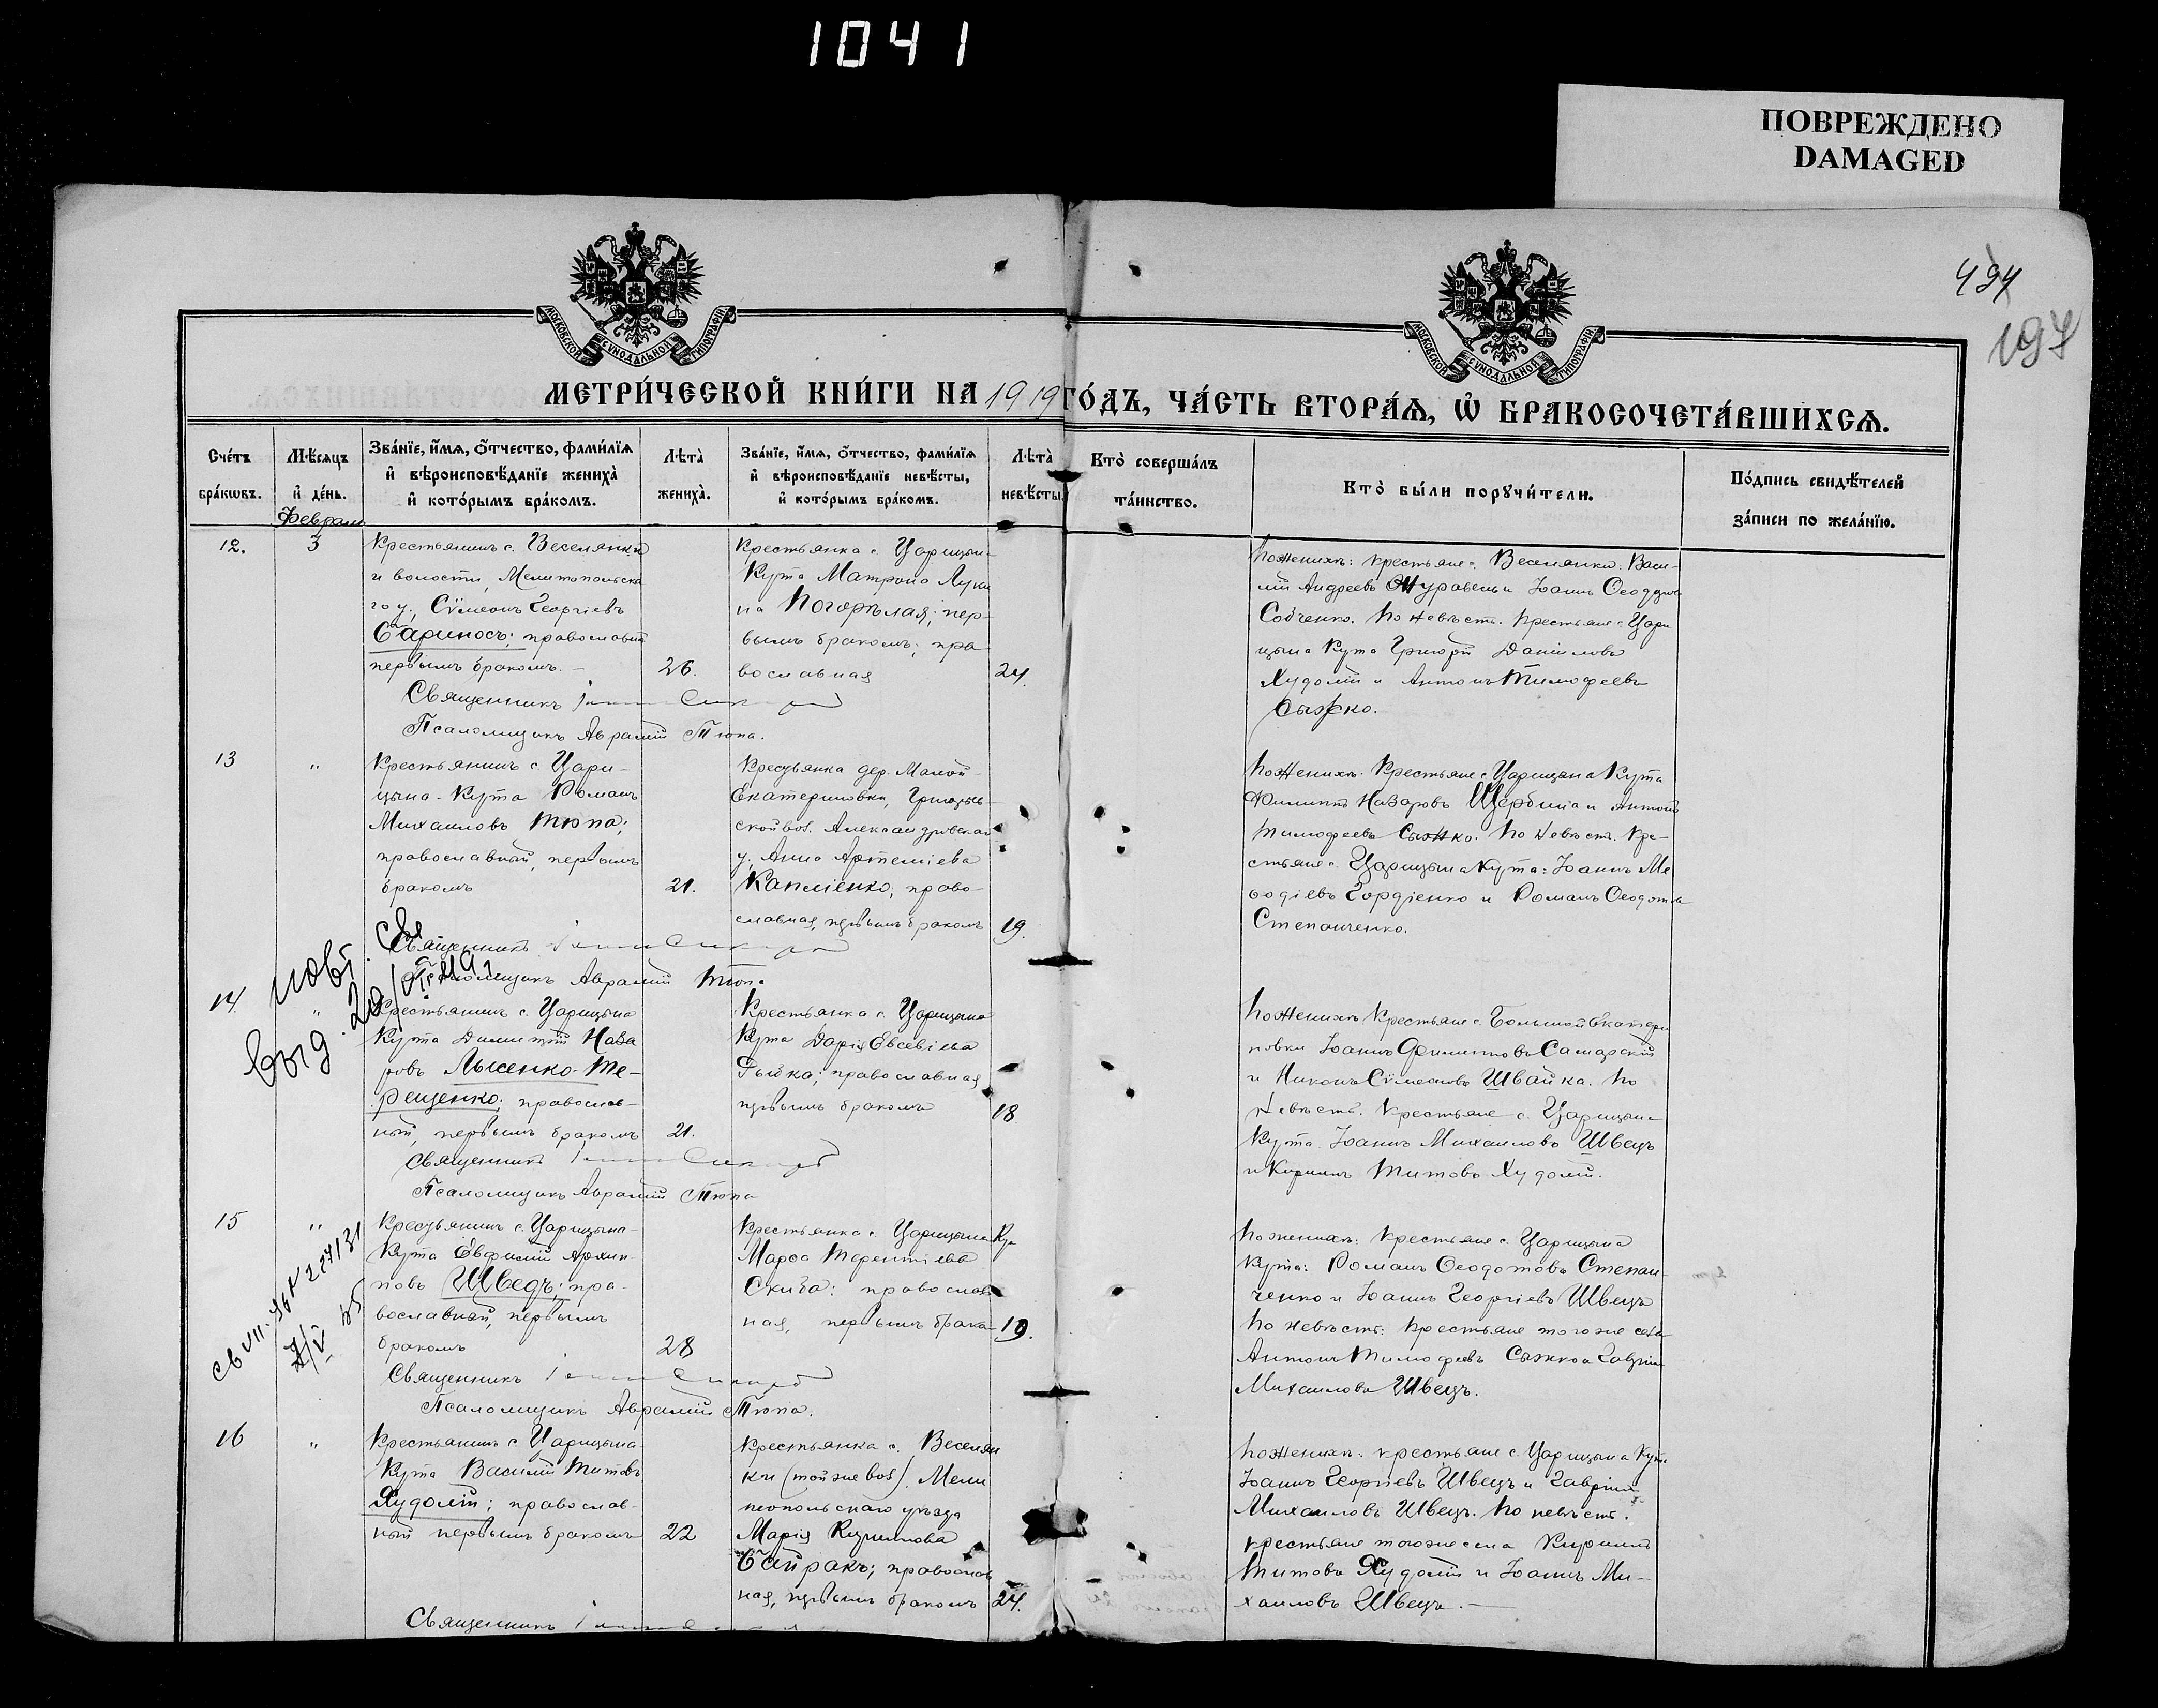 1041
ПОВРЕЖДЕНО
DAMAGED
494
197
МОСКОВСКОЙ СУНОДАЛЬНОЙ ТИПОГРАФІИ
МОСКОВСКОЙ СУНОДАЛЬНОЙ ТИПОГРАФІИ
МЕТРИ́ЧЕСКОЙ КНИ́ГИ НА 1919 ГО́ДЪ, ЧА́СТЬ ВТОРА́Ѧ, Ѽ БРАКОСОЧЕТА́ВШИХСѦ.
Сче́тъ бра́кѡвъ.
Мѣ́сяцъ и҆ де́нь.
Зва́нїе, и҆́мя, ѻ҆́тчество, фами́лїя и҆ вѣроисповѣ́данїе жениха̀ и҆ кото́рымъ бра́комъ.
Лѣта̀ жениха̀.
Зва́нїе, и҆́мя, ѻ҆́тчество, фами́лїя и҆ вѣроисповѣ́данїе невѣ́сты, и҆ кото́рымъ бра́комъ.
Лѣта̀ невѣ́сты.
Кто̀ соверша́лъ та́инство.
Кто̀ бы́ли порꙋчи́тели.
По́дпись свидѣ́телей за́писи по жела́нїю.
Февраль
12.
3
Крестьянинъ с. Веселянки
и волости, Мелитопольска
го у., Сѵмеонъ Георгіевъ
Бариносъ; православный
первымъ бракомъ.
26.
Крестьянка с. Царицын-
Кута Матрона Луки
на Погорѣлая; пер-
вымъ бракомъ; пра
вославная
24.
По женихѣ: крестьяне с. Веселянки: Васи-
лій Андреевъ Журавель и Іоаннъ Ѳеодул
Собченко. По невѣстѣ: крестьяне с. Цари
цына Кута Григорій Даніиловъ
Худолій и Антонъ Тимофеевъ
Сыжко.
Священникъ
Псаломщикъ Авраамій Тюпа.
13
"
Крестьянинъ с. Цари-
цына-Кута Романъ
Михаиловъ Тюпа;
православный, первымъ
бракомъ
21.
Крестьянка дер. Малой-
Екатериновки, Григорьев-
ской вол. Александровскаго
у. Анна Артеміева
Капліенко, право-
славная, первымъ бракомъ
19.
По женихѣ: Крестьяне с. Царицына Кута
Филиппъ Назаровъ Щербина и Антонъ
Тимофеевъ Сыжко. По невѣстѣ: Кре-
стьяне с. Царицына Кута: Іоаннъ Ме
ѳодіевъ Гордіенко и Романъ Ѳеодотовъ
Степанченко.
Священникъ
Псаломщикъ Авраамій Тюпа
14
"
Крестьянинъ с. Царицына
Кута Димитрій Наза
ровъ Лысенко-Те-
рещенко; православ-
ный, первымъ бракомъ
21.
Крестьянка с. Царицына
Кута Дарія Евсевіева
православная
первымъ бракомъ
18
По женихѣ Крестьяне с. Большой Екатери
новки Іоаннъ Филипповъ Самарскій
и Никонъ Сѵмеоновъ Швайка. По
невѣстѣ: Крестьяне с. Царицына
Кута Іоаннъ Михаиловъ Швецъ
и Кириллъ Титовъ Худолій.
Священникъ
Псаломщикъ Авраамій Тюпа
15
"
Крестьянинъ с. Царицына-
Кута Евфимій Архип-
повъ Шведъ; пра-
вославный, первымъ
бракомъ
28
Крестьянка с. Царицына Ку
Марѳа Терентіева
Скиба: православ
ная, первымъ брако
19.
По женихѣ: крестьяне с. Царицына
Кута: Романъ Ѳеодотовъ Степан-
ченко и Іоаннъ Георгіевъ Швецъ
По невѣстѣ: крестьяне того же села
Антонъ Тимофеевъ Сыжко и Гавріилъ
Михаиловъ Швецъ.
Священникъ
Псаломщикъ Авраамій Тюпа.
16
"
Крестьянинъ с. Царицына
Кута Василій Титовъ
Худолій; православ-
ный первымъ бракомъ
22
Крестьянка с. Веселян
ки (той же вол). Мели
топольскаго уѣзда
Марія Кириллова
Байракъ; православ
ная, первымъ бракомъ
24.
По женихѣ: крестьяне с. Царицына Кута
Іоаннъ Георгіевъ Швецъ и Гавріилъ
Михаиловъ Швецъ. По невѣстѣ:
крестьяне того же села Кириллъ
Титовъ Худолій и Іоаннъ Ми-
хаиловъ Швецъ.
Священникъ